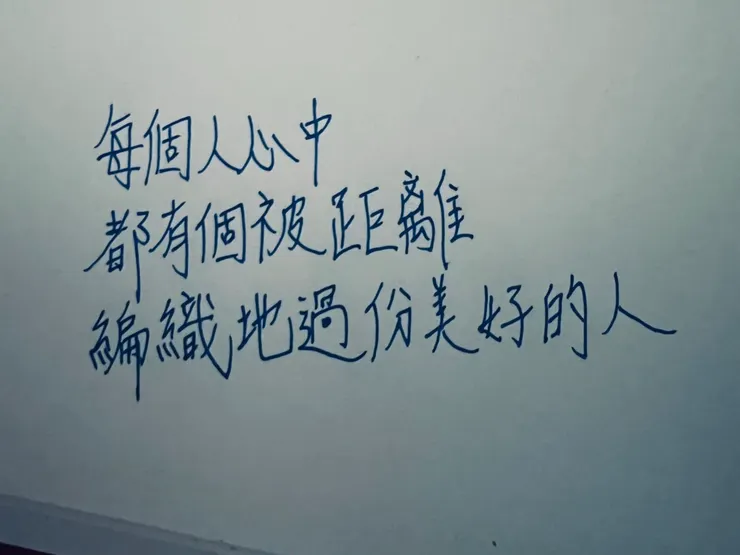 每個人心中
都有個被距離
編織地過份美好的人